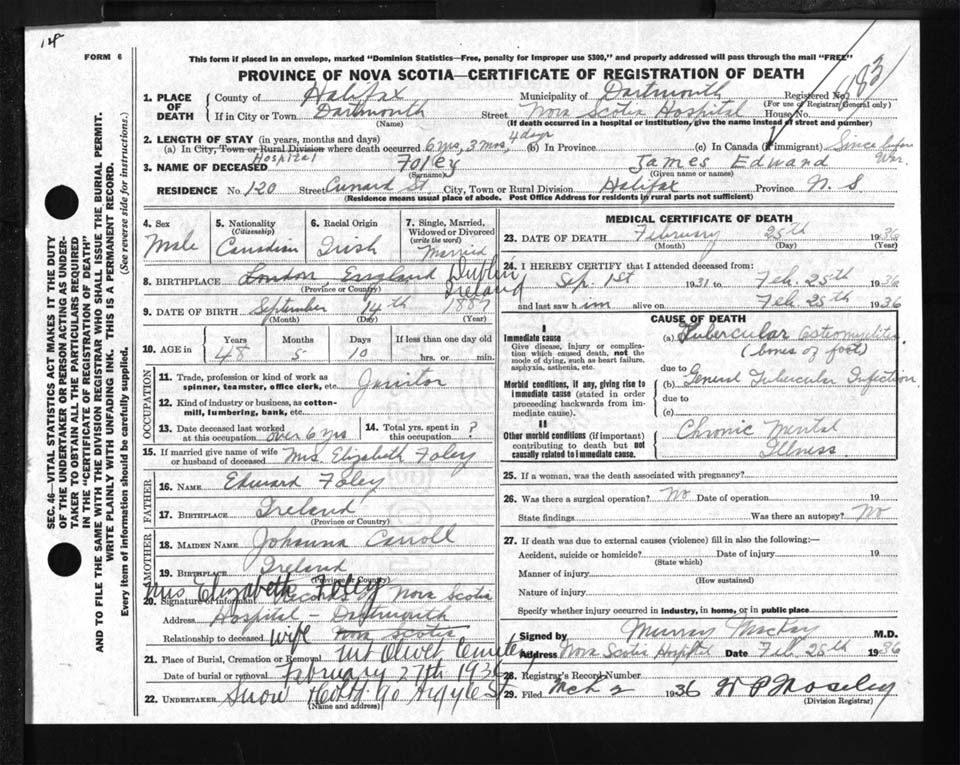 FORM 6
This form if placed in an envelope, marked "Dominion Statistics—Free, penalty for improper use $300," and properly addressed will pass through the mail "FREE"
PROVINCE OF NOVA SCOTIA—CERTIFICATE OF REGISTRATION OF DEATH
183
1. PLACE OF DEATH
County of Halifax Municipality of Dartmouth Registered No.
(For use of Registrar General only)
If in City or Town Dartmouth Street Nova Scotia Hospital House No.
(Name) (If death occurred in a hospital or institution, give the name instead of street and number)
2. LENGTH OF STAY (in years, months and days) 4 days
(a) In City, Town or Rural Division where death occurred 6 yrs, 3 mos, (b) In Province (c) In Canada (if immigrant) Since before War.
Hospital
3. NAME OF DECEASED Foley James Edward
(Surname) (Given name or names)
RESIDENCE No. 120 Street Cunard St. City, Town or Rural Division Halifax Province N. S
(Residence means usual place of abode. Post Office Address for residents in rural parts not sufficient)
4. Sex Male
5. Nationality (Citizenship) Canadian
6. Racial Origin Irish
7. Single, Married, Widowed or Divorced (write the word) Married
8. BIRTHPLACE London, England Dublin Ireland
(Province or Country)
9. DATE OF BIRTH September 14th 1887
(Month) (Day) (Year)
10. AGE in Years 48 Months 5 Days 10 If less than one day old hrs. or min.
OCCUPATION
11. Trade, profession or kind of work as spinner, teamster, office clerk, etc. Janitor
12. Kind of industry or business, as cotton-mill, lumbering, bank, etc.
13. Date deceased last worked at this occupation over 6 yrs
14. Total yrs. spent in this occupation ?
15. If married give name of wife or husband of deceased Mrs Elizabeth Foley
FATHER
16. NAME Edward Foley
17. BIRTHPLACE Ireland
(Province or Country)
MOTHER
18. MAIDEN NAME Johanna Carroll
19. BIRTHPLACE Ireland
(Province or Country)
Mrs Elizabeth Foley
20. Signature of informant Records of Nova Scotia
Address Hospital - Dartmouth
Relationship to deceased wife Nova Scotia
21. Place of Burial, Cremation or Removal Mt Olivet Cemetery
Date of burial or removal February 27th 1936
22. UNDERTAKER Snow 90 Argyle St
(Name and address)
MEDICAL CERTIFICATE OF DEATH
23. DATE OF DEATH February 25th 1936
(Month) (Day) (Year)
24. I HEREBY CERTIFY that I attended deceased from:
Sep. 1st 1931 to Feb. 25th 1936
and last saw him alive on Feb. 25th 1936
CAUSE OF DEATH
I
Immediate cause
Give disease, injury or complication which caused death, not the mode of dying, such as heart failure, asphyxia, asthenia, etc.
(a) Tubercular Osteomyelitis
(bones of foot)
due to
Morbid conditions, if any, giving rise to immediate cause (stated in order proceeding backwards from immediate cause).
(b) General Tubercular Infection
due to
(c)
II
Other morbid conditions (if important) contributing to death but not causally related to immediate cause.
Chronic Mental
Illness.
25. If a woman, was the death associated with pregnancy?
26. Was there a surgical operation? No Date of operation 19
State findings Was there an autopsy? No
27. If death was due to external causes (violence) fill in also the following:—
Accident, suicide or homicide? Date of injury 19
(State which)
Manner of injury
(How sustained)
Nature of injury
Specify whether injury occurred in industry, in home, or in public place
Signed by Murray MacKay M.D.
Address Nova Scotia Hospital Date Feb. 25th 1936
28. Registrar's Record Number
29. Filed Mch 2 1936 W P Moseley
(Division Registrar)
SEC. 46—VITAL STATISTICS ACT MAKES IT THE DUTY
OF THE UNDERTAKER OR PERSON ACTING AS UNDER-
TAKER TO OBTAIN ALL THE PARTICULARS REQUIRED
IN THE "CERTIFICATE OF REGISTRATION OF DEATH"
AND TO FILE THE SAME WITH THE DIVISION REGISTRAR WHO SHALL ISSUE THE BURIAL PERMIT.
WRITE PLAINLY WITH UNFADING INK. THIS IS A PERMANENT RECORD.
Every item of information should be carefully supplied. (See reverse side for instructions.)